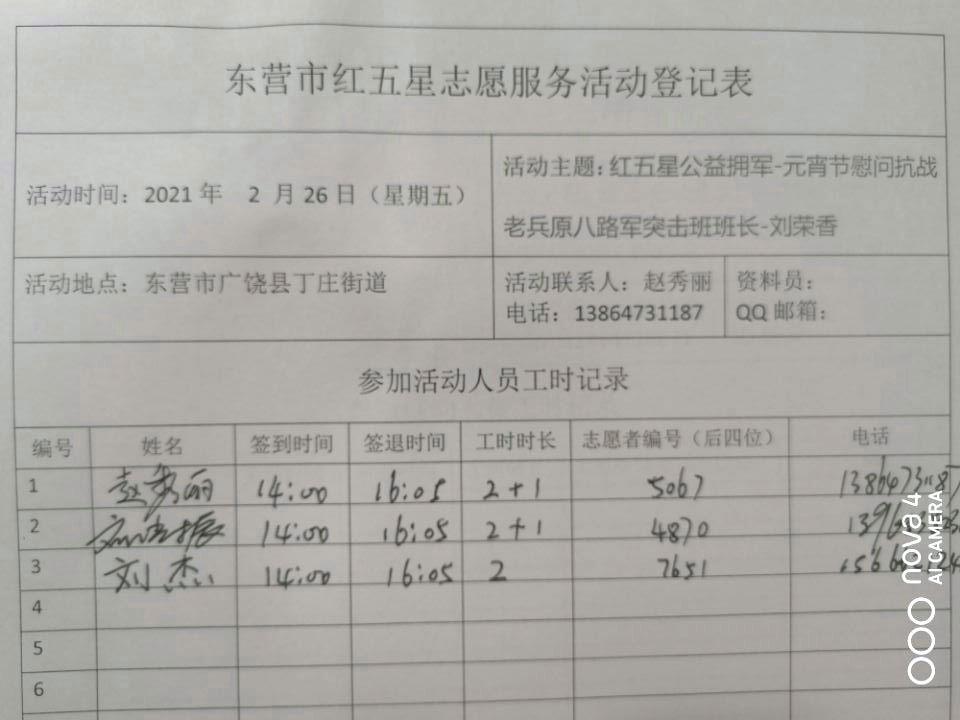 东营市红五星志愿服务活动登记表
活动时间：2021 年 2 月 26 日（星期五）
活动主题：红五星公益拥军-元宵节慰问抗战
老兵原八路军突击班班长-刘荣香
活动地点：东营市广饶县丁庄街道
活动联系人：赵秀丽
电话：13864731187
资料员：
QQ 邮箱：
参加活动人员工时记录
编号 姓名 签到时间 签退时间 工时时长 志愿者编号（后四位） 电话
1 赵秀丽 14:00 16:05 2+1 5067 13864731187
2 14:00 16:05 2+1 4870
3 刘杰 14:00 16:05 2 7651
4
5
6
nova 4
AI CAMERA